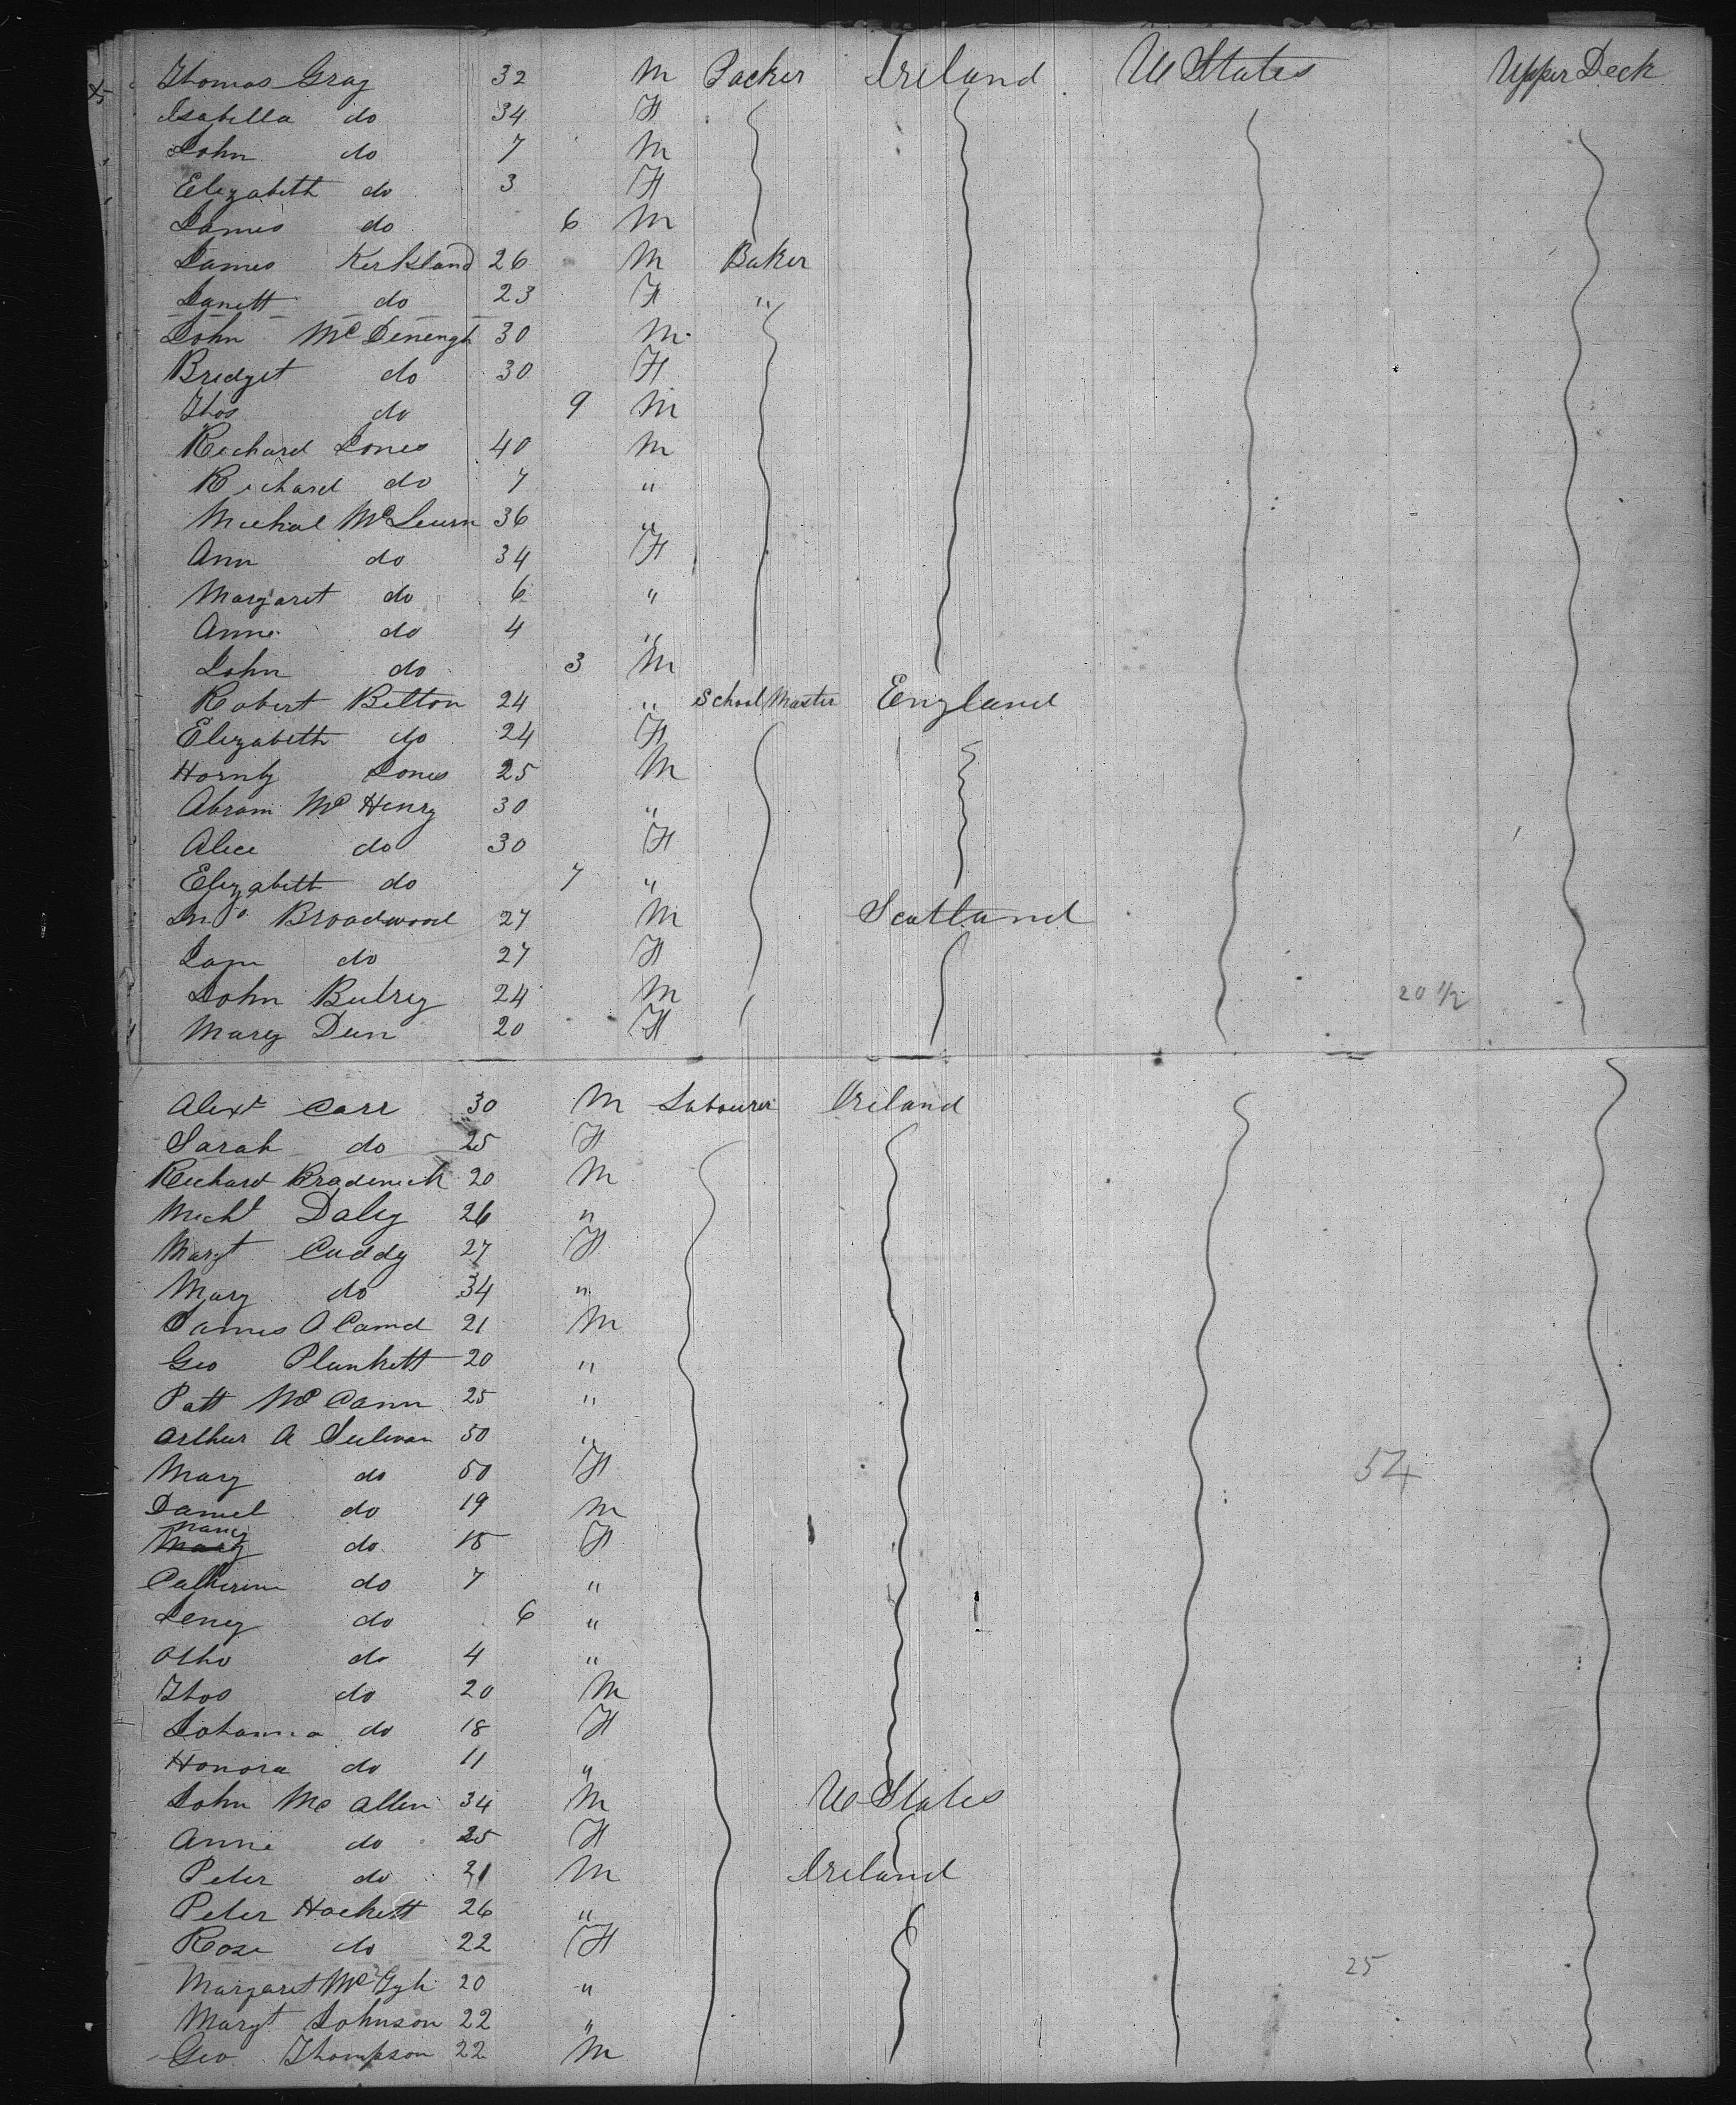 Thomas Gray 32 M Packer Ireland U States Upper Deck
Isabella do 34 F
John do 7 M
Elizabeth do 3 F
James do 6 M
James Kirkland 26 M Baker
Janett do 23 F "
John McDenengh 30 M
Bridget do 30 F
Thos do 9 M
Richard Jones 40 M
Richard do 7 "
Micheal McLeurn 36 "
Ann do 34 F
Margaret do 6 "
Anne do 4 "
John do 3 M
Robert Bilton 24 " School Master England
Elizabeth do 24 F
Hornby Jones 25 M
Abram McHenry 30 "
Alice do 30 F
Elizabeth do 7 "
Jno. Broadwood 27 M Scotland
Jane do 27 F
John 24 M 20 1/2
Mary Dun 20 F
Alext Carr 30 M Labourer Ireland
Sarah do 25 F
Richard Bradenick 20 M
Michl Daley 26 "
Margt Cuddy 27 F
Mary do 34 "
James O 21 M
Geo Plunkett 20 "
Patt McCann 25 "
Arthur A Sulivan 50 "
Mary do 50 F 54
Daniel do 19 M
Nancy
Mary do 15 F
Catherine do 7 "
do 6 "
Otho do 4 "
Thos do 20 M
Johanna do 18 F
Honora do 11 "
John McAllen 34 M U States
Anne do 25 F
Peter do 21 M Ireland
Peter Hackett 26 "
Rose do 22 F
Margaret 20 " 25
Margt Johnson 22 "
Geo Thompson 22 M